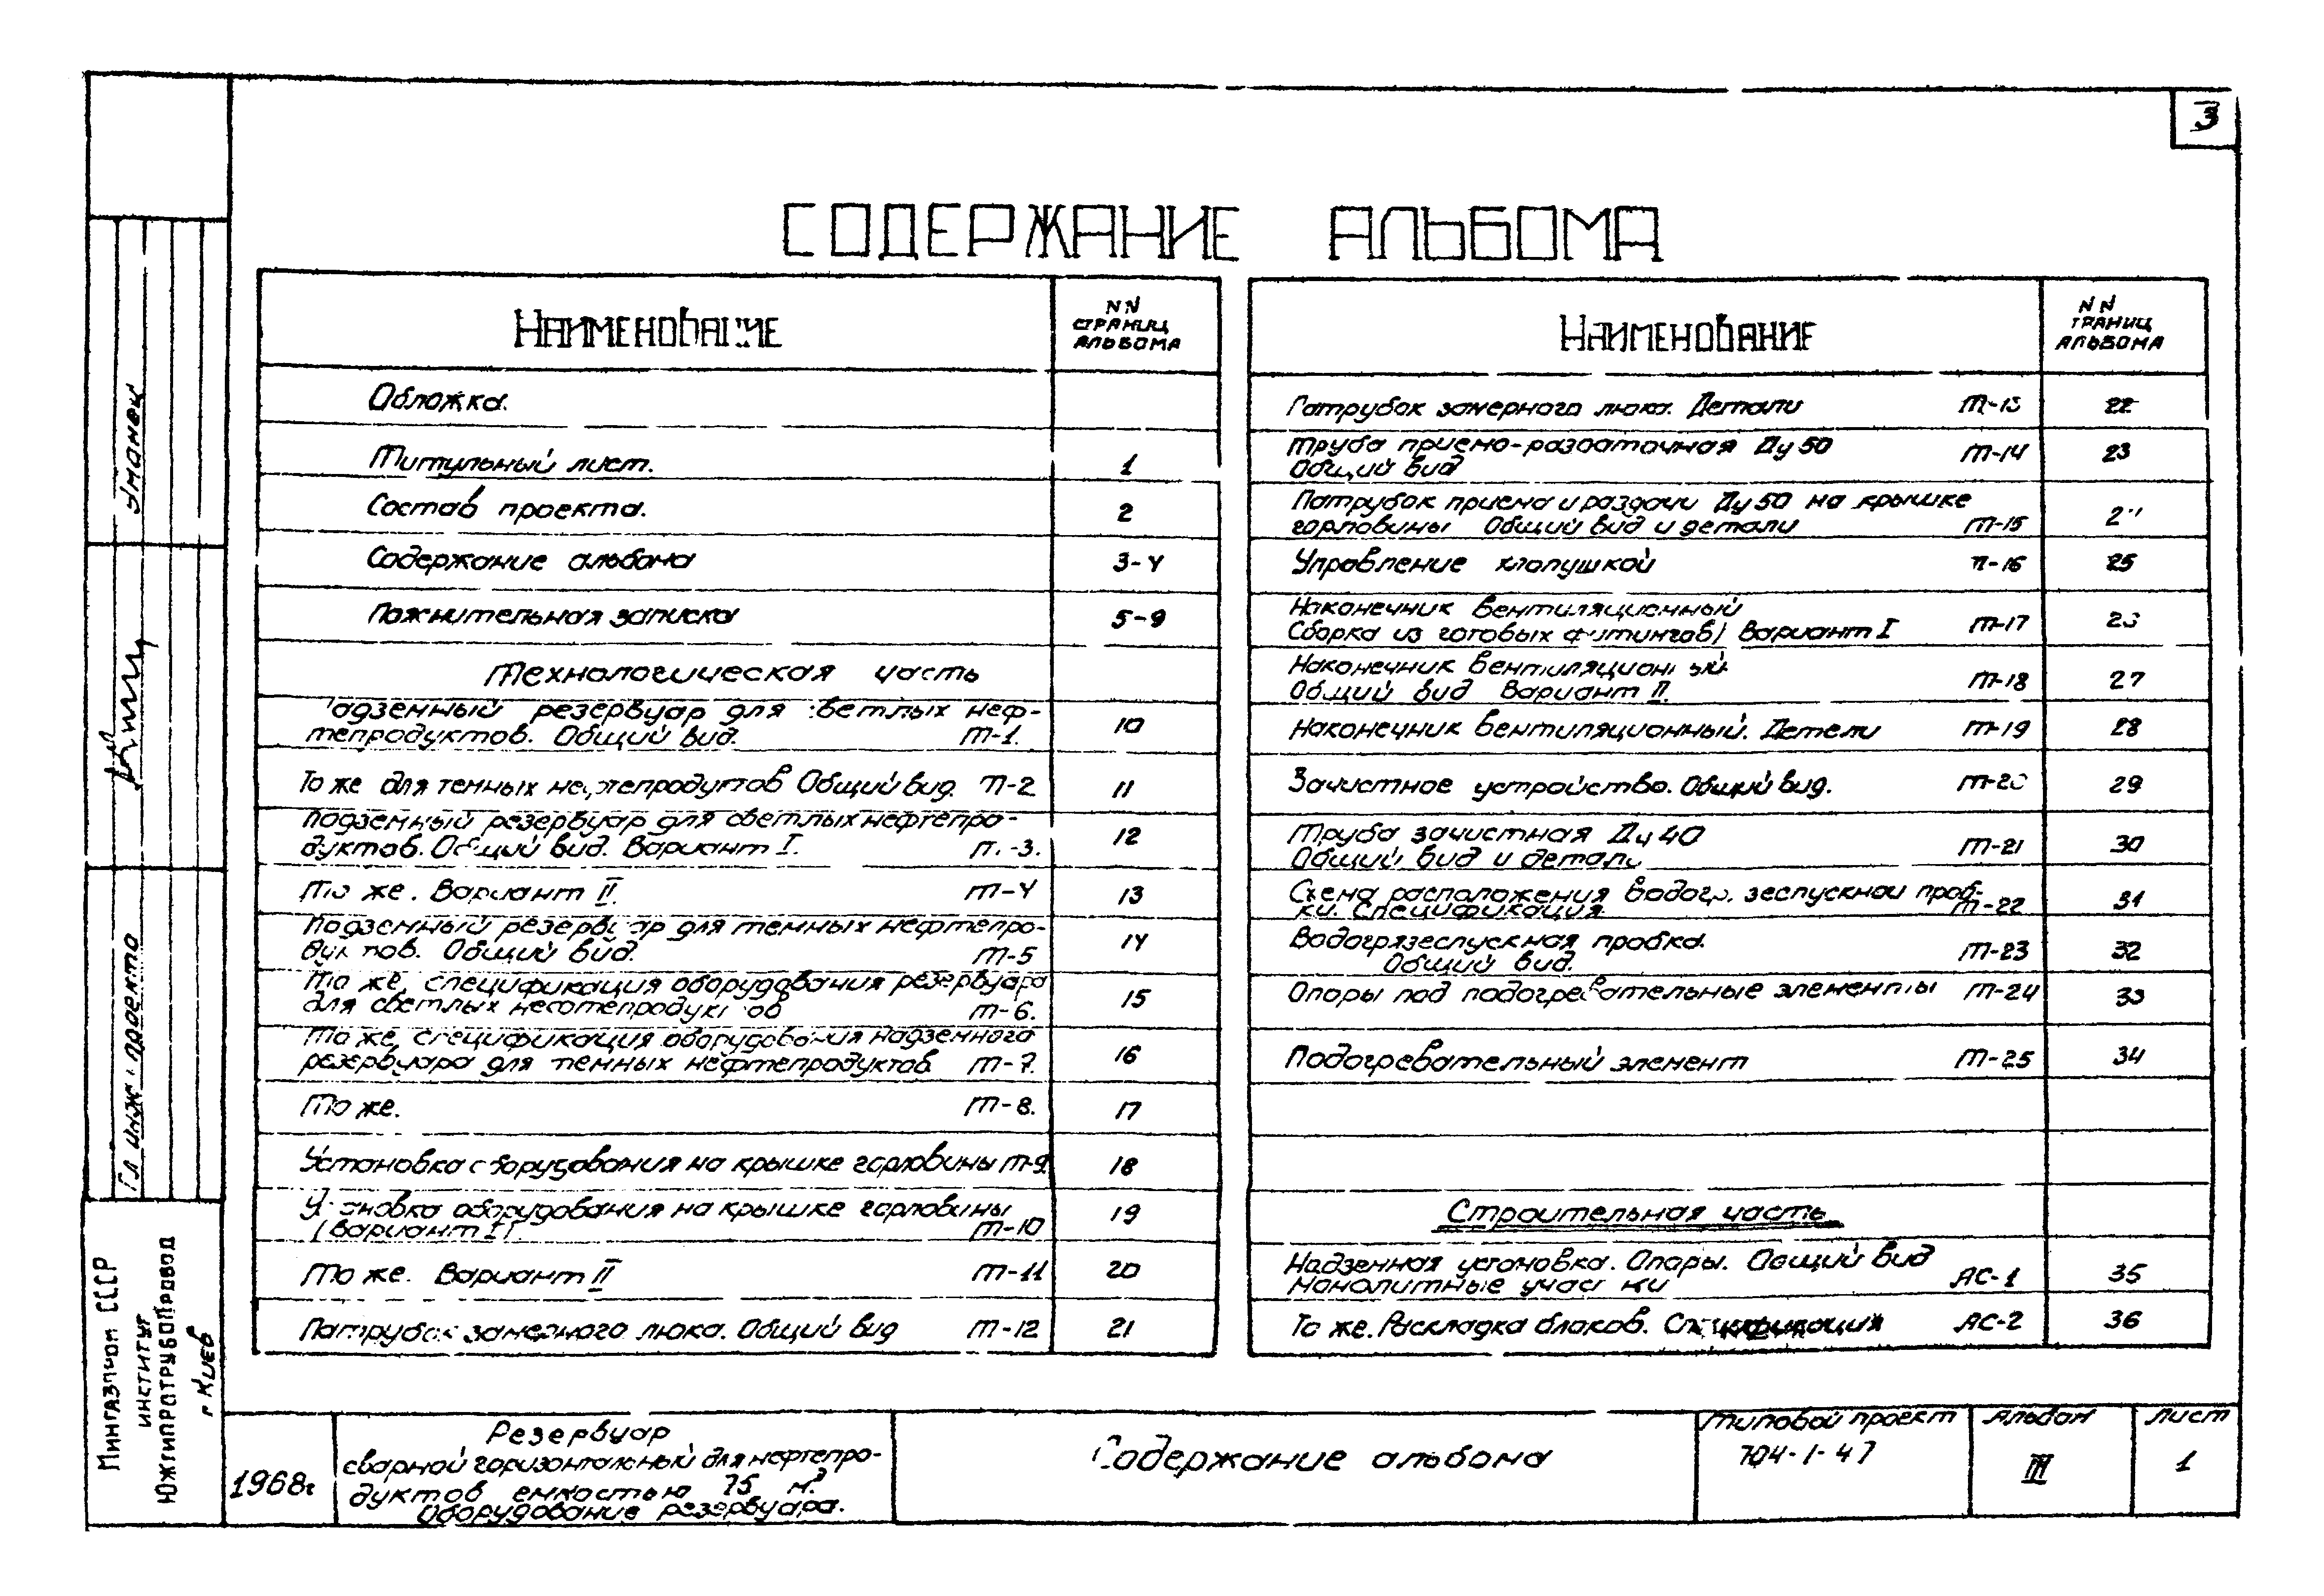 3
СОДЕРЖАНИЕ АЛЬБОМА
НАИМЕНОВАНИЕ
NN
СТРАНИЦ
АЛЬБОМА
Обложка.
Титульный лист. 1
Состав проекта. 2
Содержание альбома 3-4
Пояснительная записка 5-9
Технологическая часть
Надземный резервуар для светлых неф-
тепродуктов. Общий вид. Т-1. 10
То же для темных нефтепродуктов Общий вид. Т-2 11
Подземный резервуар для светлых нефтепро-
дуктов. Общий вид. Вариант I. Т-3. 12
То же. Вариант II. Т-4 13
Подземный резервуар для темных нефтепро-
дуктов. Общий вид. Т-5 14
То же, спецификация оборудования резервуара
для светлых нефтепродуктов Т-6. 15
То же, спецификация оборудования надземного
резервуара для темных нефтепродуктов Т-7. 16
То же. Т-8. 17
Установка оборудования на крышке горловины Т-9. 18
Установка оборудования на крышке горловины
(Вариант I). Т-10 19
То же. Вариант II Т-11 20
Патрубок замерного люка. Общий вид Т-12 21
НАИМЕНОВАНИЕ
NN
ТРАНИЦ
АЛЬБОМА
Патрубок замерного люка. Детали Т-13 22
Труба приемо-раздаточная Ду 50 Т-14 23
Общий вид
Патрубок приема и раздачи Ду 50 на крышке
горловины Общий вид и детали Т-15
Управление хлопушкой Т-16 25
Наконечник вентиляционный
Сборка из готовых фитингов) Вариант I Т-17
Наконечник вентиляционный
Общий вид Вариант II. Т-18 27
Наконечник вентиляционный. Детели Т-19 28
Зачистное устройство. Общий вид. Т-20 29
Труба зачистная Ду 40
Общий вид и детали Т-21 30
Схема расположения водогрязеспускной проб-
ки. Спецификация. Т-22 31
Водогрязеспускная пробка.
Общий вид. Т-23 32
Опоры под подогревательные элементы Т-24 33
Подогревательный элемент Т-25 34
Строительная часть
Надземная установка. Опоры. Общий вид
Монолитные участки АС-1 35
То же. Раскладка блоков. Спецификация АС-2 36
Уманец
Гл инж. проекта
Мингазпром СССР
ИНСТИТУТ
ЮЖГИПРОТРУБОПРОВОД
г Киев
1968г
Резервуар
сварной горизонтальный для нефтепро-
дуктов емкостью 75 м³.
Оборудование резервуара.
Содержание альбома
Типовой проект
704-1-47
Альбом
III
Лист
1